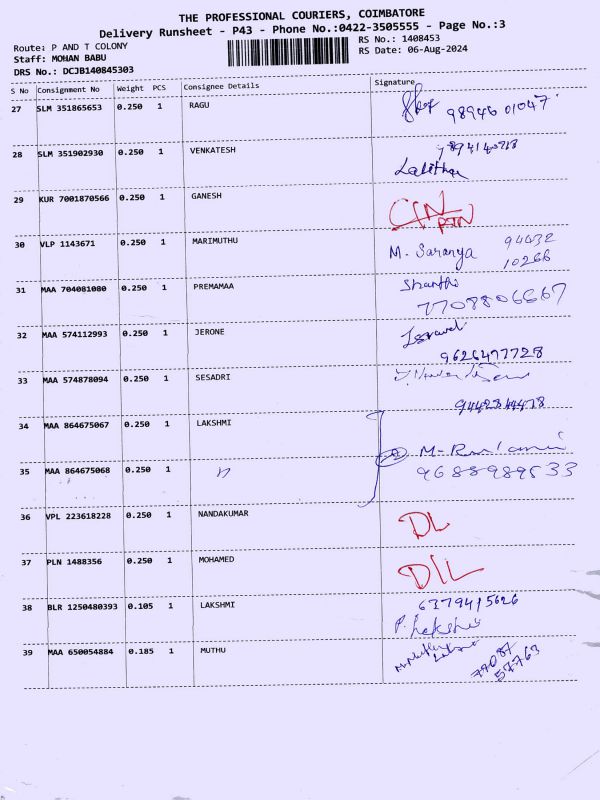 THE PROFESSIONAL COURIERS, COIMBATORE
Delivery Runsheet - P43 - Phone No.:0422-3505555 - Page No.:3
Route: P AND T COLONY
RS No.: 1408453
Staff: MOHAN BABU
RS Date: 06-Aug-2024
DRS No.: DCJB140845303
S No Consignment No Weight PCS Consignee Details Signature
27 SLM 351865653 0.250 1 RAGU 98946 01047
28 SLM 351902930 0.250 1 VENKATESH
Lalitha
29 KUR 7001870566 0.250 1 GANESH
30 VLP 1143671 0.250 1 MARIMUTHU M. Saranya 94432
10266
31 MAA 704081080 0.250 1 PREMAMAA Shanthi
7708806667
32 MAA 574112993 0.250 1 JERONE
9626477728
33 MAA 574878094 0.250 1 SESADRI
9442344478
34 MAA 864675067 0.250 1 LAKSHMI
35 MAA 864675068 0.250 1 9688989533
36 VPL 223618228 0.250 1 NANDAKUMAR DL
37 PLN 1488356 0.250 1 MOHAMED DIL
38 BLR 1250480393 0.105 1 LAKSHMI 6379415626
39 MAA 650054884 0.185 1 MUTHU
57763